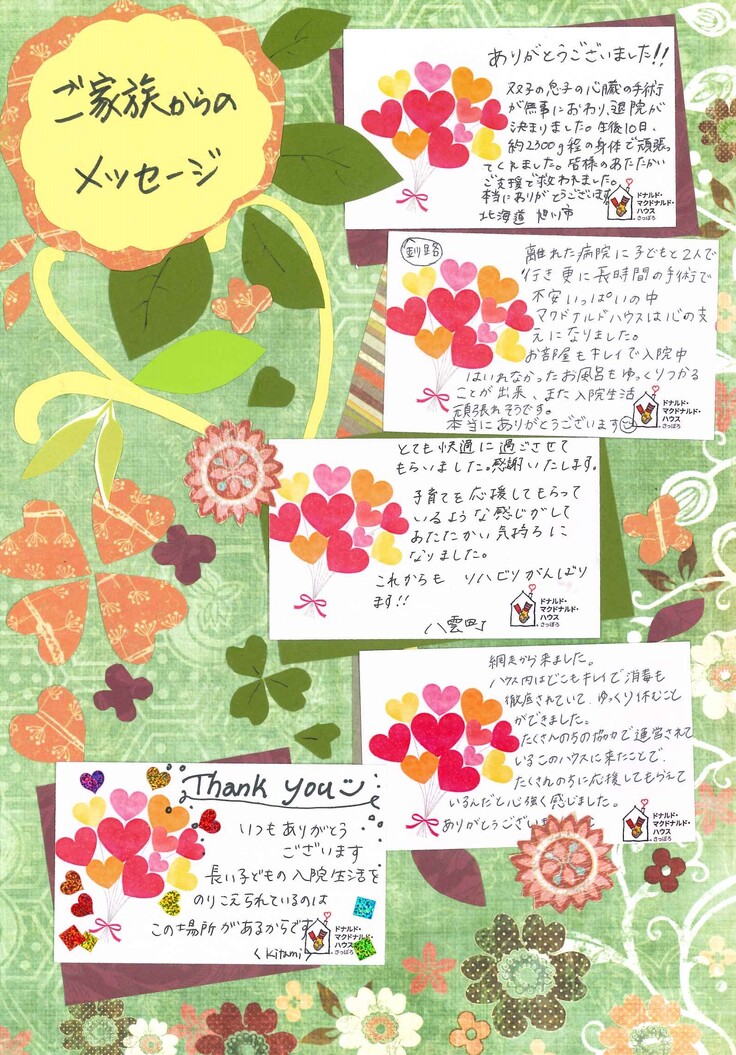 ご家族からの
メッセージ
ありがとうございました!!
双子の息子の心臓の手術
が無事におわり、退院が
決まりました。生後10日、
約2300g程の身体で頑張っ
てくれました。皆様のあたたかい
ご支援で救われました。
本当にありがとうございます
北海道 旭川市
ドナルド・
マクドナルド・
ハウス
さっぽろ
釧路
離れた病院に子どもと2人で
行き更に長時間の手術で
不安いっぱいの中
マクドナルドハウスは心の支
えになりました。
お部屋もキレイで入院中
はいれなかったお風呂もゆっくりつかる
ことが出来、また入院生活
頑張れそうです。
本当にありがとうございます
ドナルド・
マクドナルド・
ハウス
さっぽろ
とても快適に過ごさせて
もらいました。感謝いたします。
子育てを応援してもらって
いるような感じがして
あたたかい気持ちに
なりました。
これからも リハビリがんばり
ます!!
八雲町
ドナルド・
マクドナルド・
ハウス
さっぽろ
網走から来ました。
ハウス内はどこもキレイで消毒も
徹底されていて、ゆっくり休むこと
ができました。
たくさんの方の協力で運営されて
いるこのハウスに来たことで、
たくさんの方に応援してもらえて
いるんだと心強く感じました。
ありがとうございま
ドナルド・
マクドナルド・
ハウス
さっぽろ
Thank you
いつもありがとう
ございます
長い子どもの入院生活を
のりこえられているのは
この場所があるからです
(Kitami)
ドナルド・
マクドナルド・
ハウス
さっぽろ